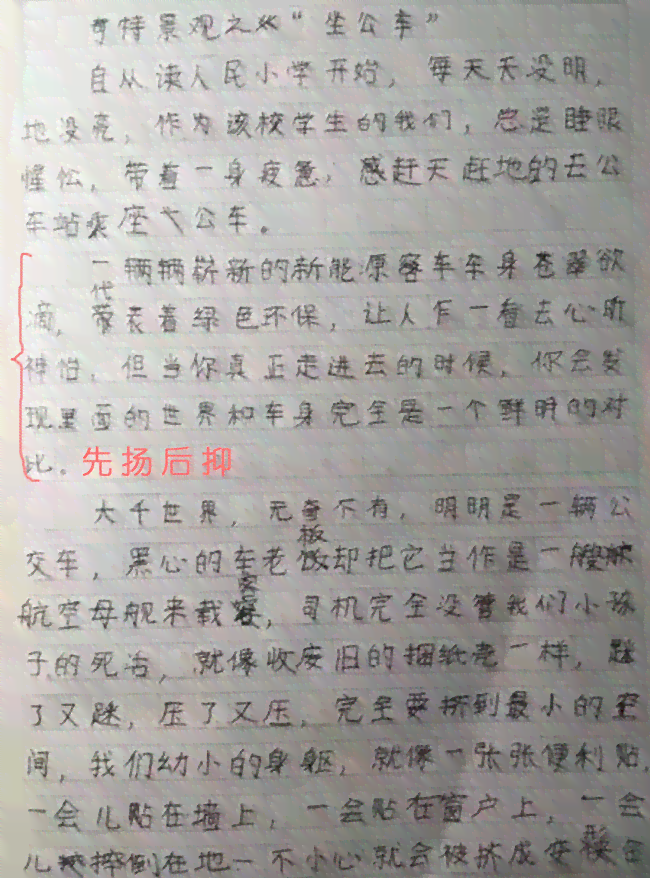 奇特景观之 “坐公车”
自从读人民小学开始，每天天没明，
地没亮，作为该校学生的我们，总是睡眼
惺忪，带着一身疲惫，感赶天赶地的去公
车站乘座 公车。
一辆辆崭新的新能源客车车身苍翠欲
滴，代表着绿色环保，让人乍一看去心旷
神怡，但当你真正走进去的时候，你会发
现里面的世界和车身完全是一个鲜明的对
比。先扬后抑
大千世界，无奇不有，明明是一辆公
交车，黑心的车老板却把它当作是一艘
航空母舰来载客，司机完全没管我们小孩
子的死活，就像收废旧的捆纸壳一样，
了又 ，压了又压，完全要挤到最小的空
间，我们幼小的身躯，就像一张张便利贴，
一会儿贴在墙上，一会贴在窗户上，一会
儿摔倒在地一不小心就会被挤成变形